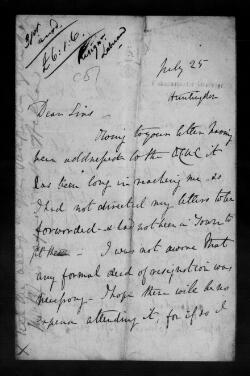 £6.1.6
July 25
Huntingdon
Dear Sirs
Owing to your letter having
been addressed to the it
has been long in reaching me - as
I had not directed my letters to be
forwarded - & has not been in Town to
get them - I was not aware that
any formal deed of resignation was
necessary - I hope there will be no
expense attending it, for if so I